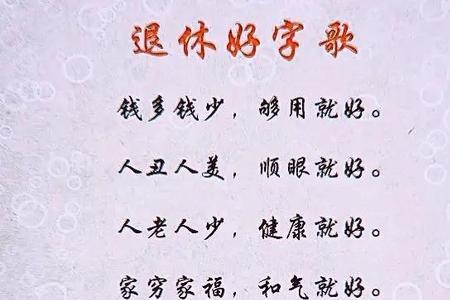 退休好字歌
钱多钱少，够用就好。
人丑人美，顺眼就好。
人老人少，健康就好。
家穷家福，和气就好。